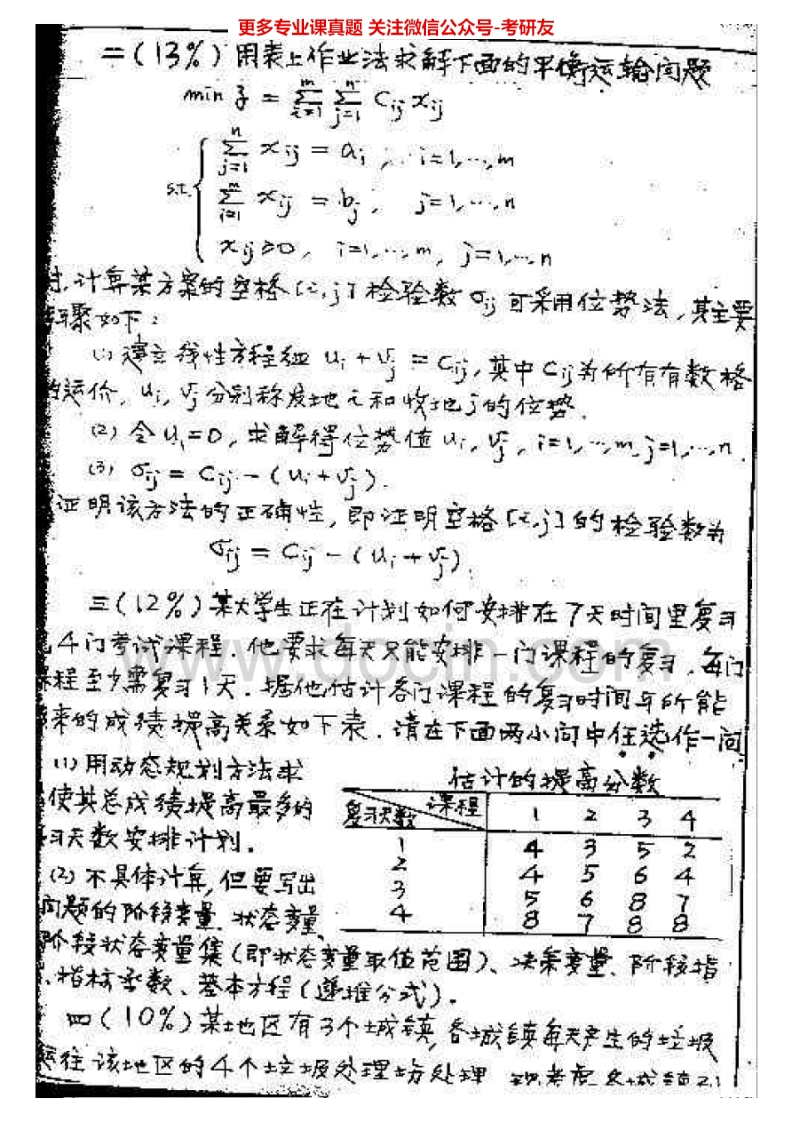 更多专业课真题 关注微信公众号-考研友
二(13%)用表上作业法求解下面的平衡运输问题
min z = ∑_{i=1}^{m} ∑_{j=1}^{n} C_ij x_ij
s.t. { ∑_{j=1}^{n} x_ij = a_i, i=1,…,m
∑_{i=1}^{m} x_ij = b_j, j=1,…,n
x_ij≥0, i=1,…,m, j=1,…,n
时,计算某方案的空格[i,j]检验数σ_ij可采用位势法,其主要
步骤如下:
(1) 建立线性方程组 u_i + v_j = C_ij,其中C_ij为所有有数格
的运价,u_i, v_j分别称发地i和收地j的位势.
(2) 令u_1=0,求解得位势值u_i, v_j, i=1,…,m, j=1,…,n.
(3) σ_ij = C_ij - (u_i + v_j).
证明该方法的正确性,即证明空格[i,j]的检验数为
σ_ij = C_ij - (u_i + v_j).
三(12%)某大学生正在计划如何安排在7天时间里复习
4门考试课程.他要求每天只能安排一门课程的复习,每门
课程至少需复习1天.据他估计各门课程的复习时间与所能
来的成绩提高关系如下表.请在下面两小问中任选作一问
www.docin.com
(1)用动态规划方法求
使其总成绩提高最多的
习天数安排计划.
(2)不具体计算,但要写出
问题的阶段变量、状态变量、
估计的提高分数
复习天数 课程 1 2 3 4
1 4 3 5 2
2 4 5 6 4
3 5 6 8 7
4 8 7 8 8
阶段状态变量集(即状态变量取值范围)、决策变量、阶段指
、指标函数、基本方程(递推公式).
四(10%)某地区有3个城镇,各城镇每天产生的垃圾
运往该地区的4个垃圾处理场处理